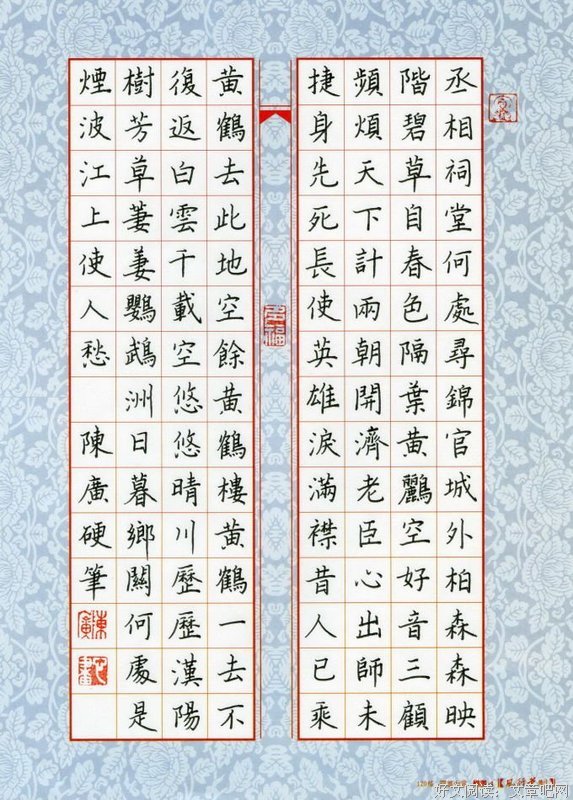 丞相祠堂何處尋錦官城外柏森森映
階碧草自春色隔葉黃鸝空好音三顧
頻煩天下計兩朝開濟老臣心出師未
捷身先死長使英雄淚滿襟昔人已乘
黃鶴去此地空餘黃鶴樓黃鶴一去不
復返白雲千載空悠悠晴川歷歷漢陽
樹芳草萋萋鸚鵡洲日暮鄉關何處是
煙波江上使人愁 陳廣硬筆
陳廣
好文阅读：文章吧网